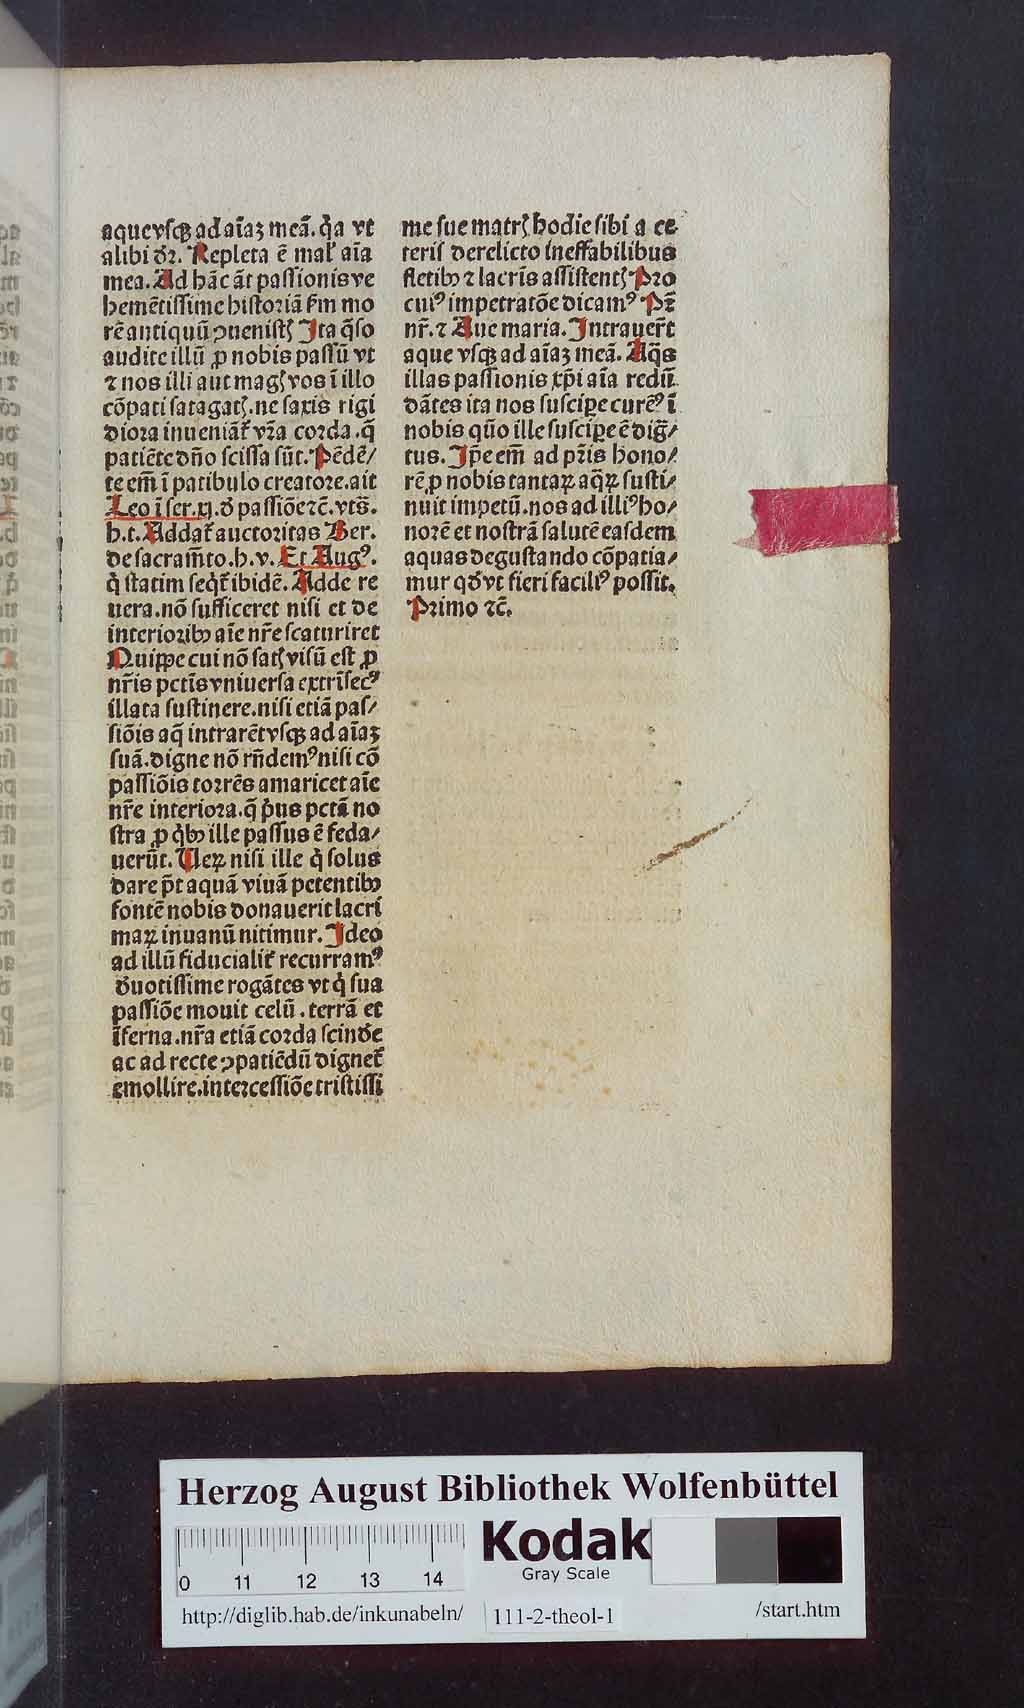 aque vsqꝫ ad aīaꝫ meā. q̇a vt
alibi dr̄. Repleta ē mal᷒ aīa
mea. Ad hāc āt passionis ve
hemētissime historiā ẜm mo
rē antiquū ꝯuenistꝭ Ita q̄so
audite illū ꝓ nobis passū vt
⁊ nos illi aut magꝭ vos ī illo
cōpati satagatꝭ. ne saxis rigi
diora inueniāt᷒ vr̄a corda. q̄
patiēte dn̄o scissa sūt. Pēdē/
te em̄ ī patibulo creatore. ait
Leo ī ser. xj. d̓ passiōe ⁊c̄. vts̄.
h. t. Addat᷒ auctoritas Ber.
de sacram̄to. h. v. Et Augꝰ.
q̇ statim seq̇t᷒ ibidē. Adde re
uera. nō sufficeret nisi et de
interioribꝰ aīe nr̄e scaturiret
Quippe cui nō satꝭ visū est ꝓ
nr̄is pctīs vniuersa extrīsecꝰ
illata sustinere. nisi etiā pas/
siōis aq̄ intrarēt vsqꝫ ad aīaꝫ
suā. digne nō rn̄demꝰ nisi cō
passiōis torrēs amaricet aīe
nr̄e interiora. q̄ p̓us pctā no
stra ꝓ q̇bꝰ ille passus ē feda/
uerūt. Ueꝝ nisi ille q̇ solus
dare pt̄ aquā viuā petentibꝰ
fontē nobis donauerit lacri
maꝝ inuanū nitimur. Ideo
ad illū fiducialit᷒ recurramꝰ
d̓uotissime rogātes vt q̇ sua
passiōe mouit celū. terrā et
īferna. nr̄a etiā corda scinde
ac ad recte ꝯpatiēdū dignet᷒
emollire. intercessiōe tristissi
me sue matrꝭ hodie sibi a ce
teris derelicto ineffabilibus
fletibꝰ ⁊ lacrīs assistentꝭ Pro
cuiꝰ impetratōe dicamꝰ Pr̄
nr̄. ⁊ Aue maria. Intrauer̄t
aque vsqꝫ ad aīaꝫ meā. Aq̄s
illas passionis xp̄i aīa redū
dātes ita nos suscipe curēꝰ ī
nobis quō ille suscipe ē diḡ/
tus. Ip̄e em̄ ad pr̄is hono/
rē ꝓ nobis tantaꝝ aq̄ꝝ susti/
nuit impetū. nos ad illiꝰ ho/
norē et nostrā salutē easdem
aquas degustando cōpatia/
mur qd̓ vt fieri faciliꝰ possit.
Primo ⁊c̄.
Herzog August Bibliothek Wolfenbüttel
Kodak
Gray Scale
0 11 12 13 14
http://diglib.hab.de/inkunabeln/ 111-2-theol-1 /start.htm